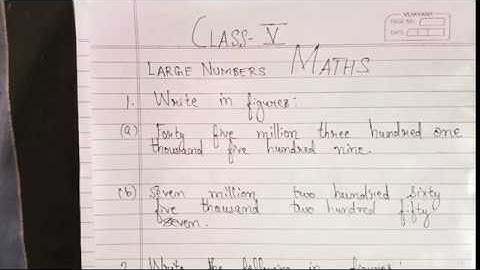 CLASS-V
PAGE NO.
DATE
LARGE NUMBERS MATHS
1. Write in figures:
(a) Forty five million three hundred one
thousand five hundred nine.
(b) Seven million two hundred sixty
five thousand two hundred fifty
seven.
2. Write the following in